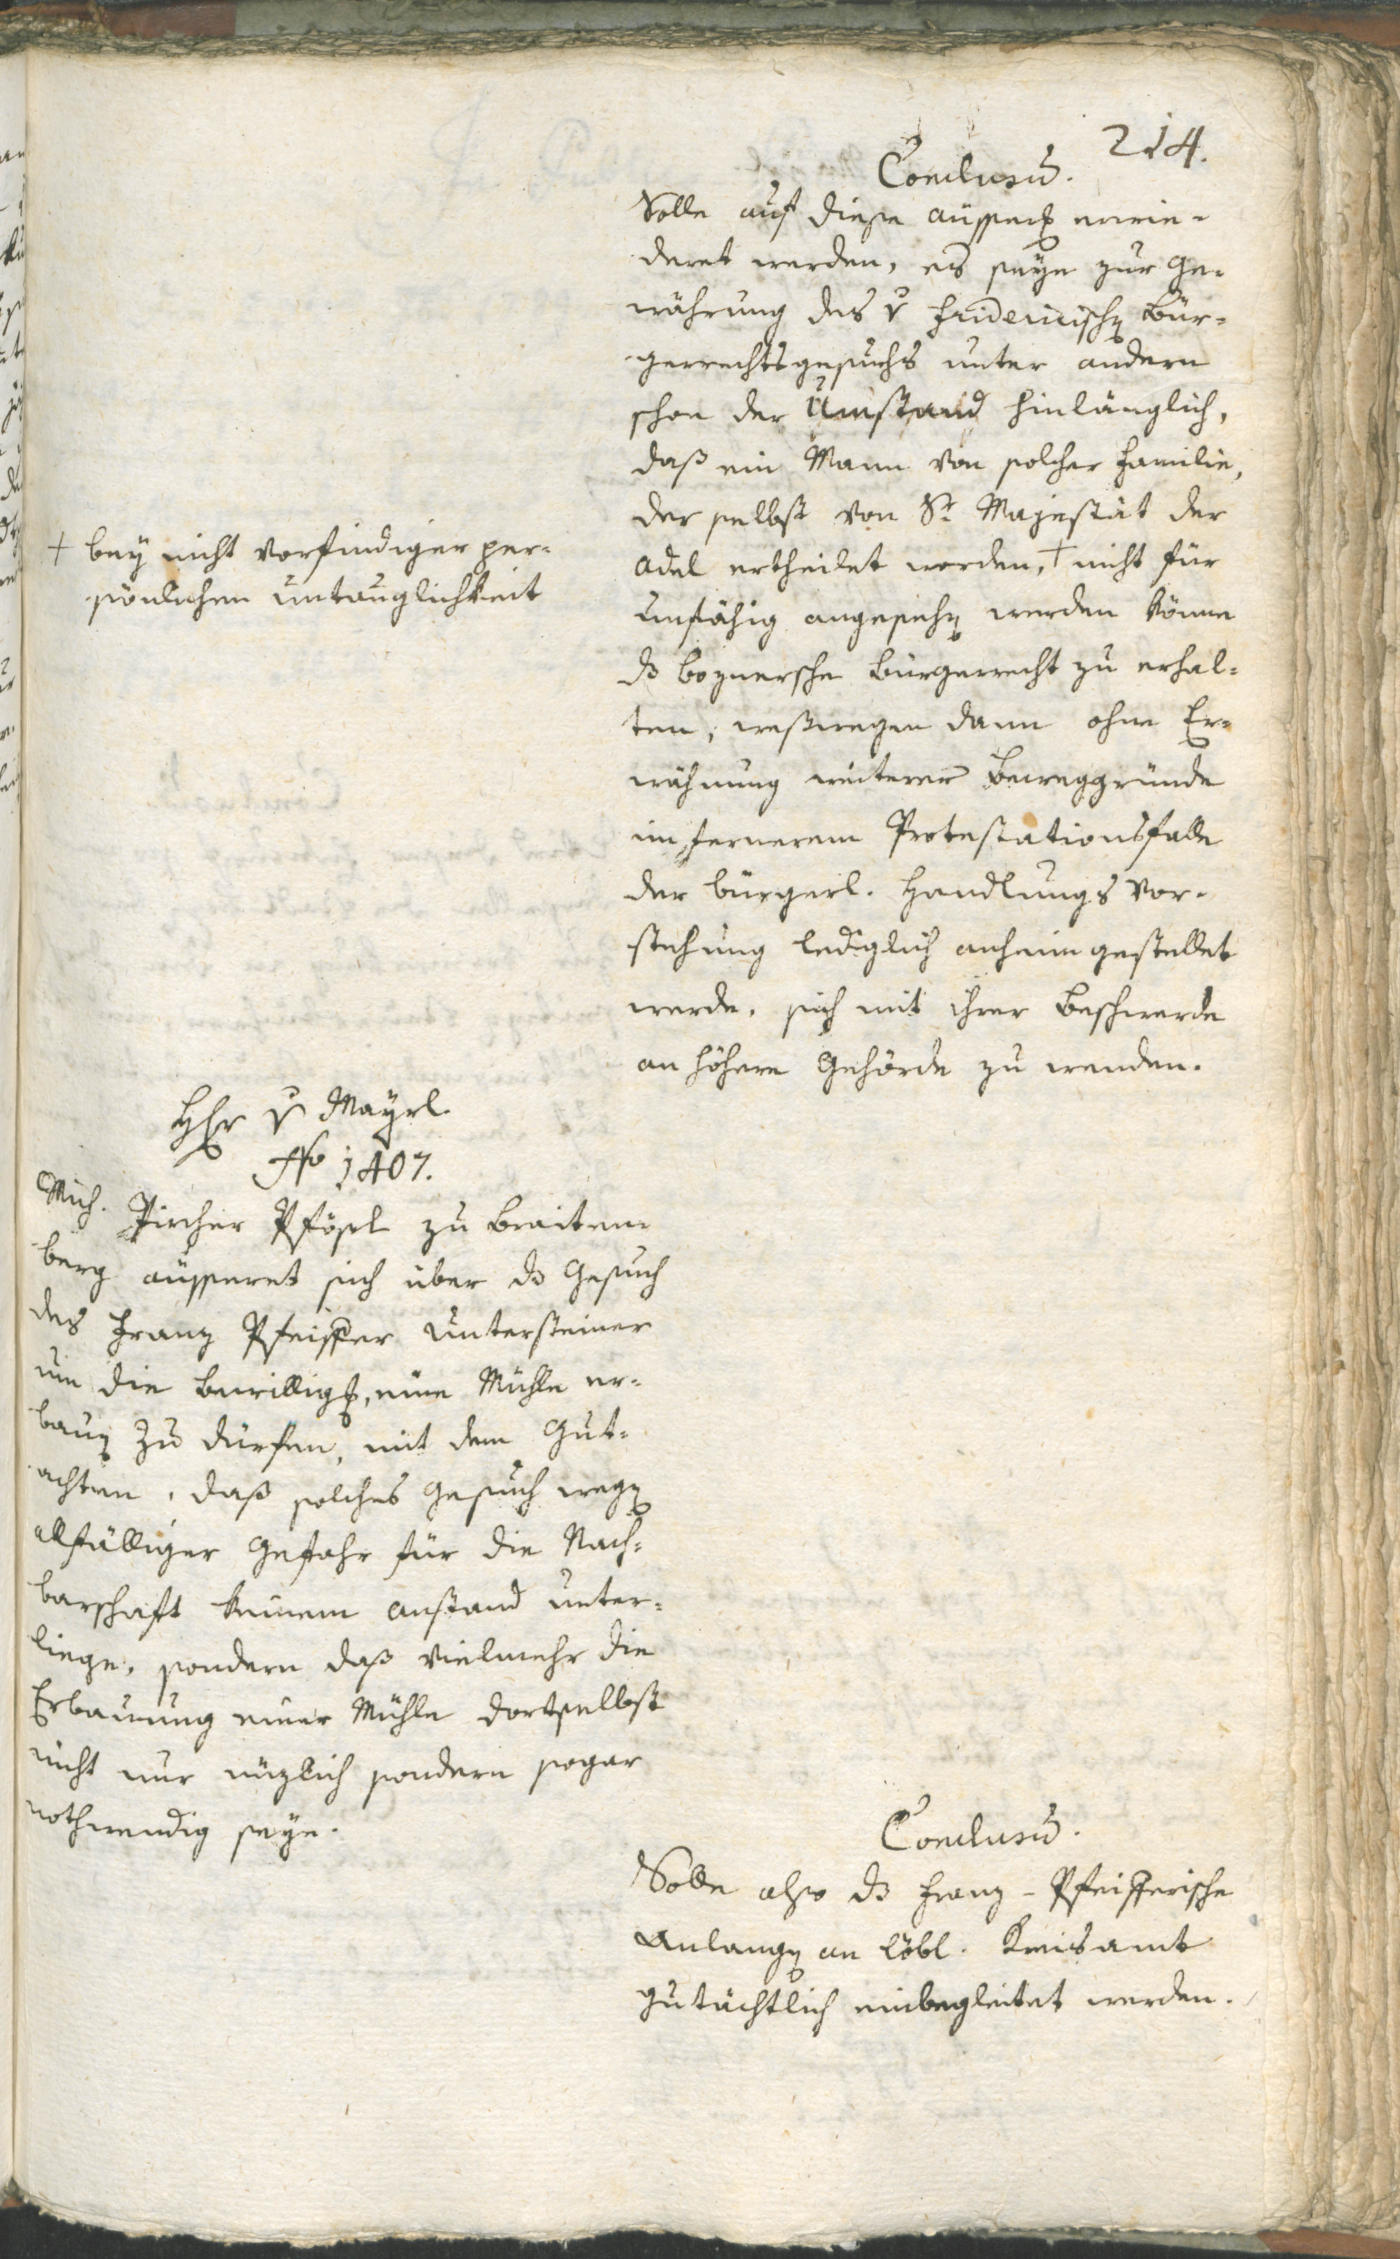 214.
Conclusũ.
Solle auf diese äusserg erwie-
deret werden, es seye zur Ge-
währung des v Fridericischen Bür-
gerrechtsgesuchs unter andern
schon der Umstand hinlänglich,
daß ein Mann von solcher Familie,
der selbst von Sr Majestät der
Adel ertheilet worden, † nicht für
unfähig angesehen werden könne
ds boznersche Bürgerrecht zu erhal-
ten, weßwegen dann ohne Er-
wähnung weiterer Beweggründe
im fernerem Protestationsfalle
der bürgerl. Handlungs Vor-
stehung lediglich anheim gestellet
werde, sich mit ihrer Beschwerde
an höhere Gehörde zu wenden.
† bey nicht vorfindiger per-
sönlichen Untauglichkeit
Hr v Mayrl.
No 1407.
Mich. Pircher Pfösl zu Breiten-
berg äusseret sich über ds Gesuch
des Franz Pfeiffer Untersteiner
um die Bewilligg, eine Mühle er-
bauen zu dürfen, mit dem Gut-
achten, daß solches Gesuch wegen
allfälliger Gefahr für die Nach-
barschaft keinem Anstand unter-
liege, sondern daß vielmehr die
Erbauung einer Mühle dortselbst
nicht nur nüzlich sondern sogar
nothwendig seye.
Conclusũ.
Solle also ds Franz-Pfeifferische
Anlangen an Löbl. Kreisamt
gutächtlich einbegleitet werden.